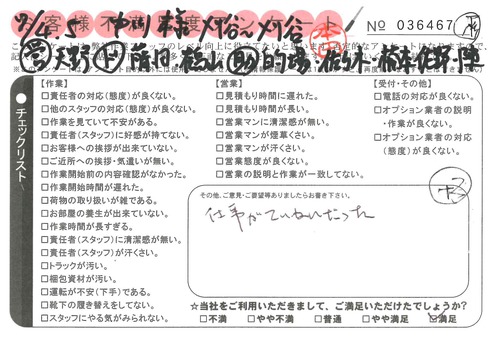 お客様不満足度アンケート
No 036467
チェックリスト
【作業】
□責任者の対応(態度)が良くない。
□他のスタッフの対応(態度)が良くない。
□作業を見ていて不安がある。
□責任者(スタッフ)に好感が持てない。
□お客様への挨拶が出来ていない。
□ご近所への挨拶・気遣いが無い。
□作業開始前の内容確認がなかった。
□作業開始時間が遅れた。
□荷物の取り扱いが雑である。
□お部屋の養生が出来ていない。
□作業時間が長すぎる。
□責任者(スタッフ)に清潔感が無い。
□責任者(スタッフ)が汗くさい。
□トラックが汚い。
□梱包資材が汚い。
□運転が不安(下手)である。
□靴下の履き替えをしてない。
□スタッフにやる気がみられない。
【営業】
□見積もり時間に遅れた。
□見積もり時間が長い。
□営業マンに清潔感が無い。
□営業マンが煙草くさい。
□営業マンが汗くさい。
□営業態度が良くない。
□営業の説明と作業が一致してない。
【受付・その他】
□電話の対応が良くない。
□オプション業者の説明・作業が良くない。
□オプション業者の対応(態度)が良くない。
その他、ご意見・ご要望等ありましたらお書き下さい。
仕事がていねいだった
☆当社をご利用いただきまして、ご満足いただけたでしょうか?
□不満 □やや不満 □普通 □やや満足 ☑満足